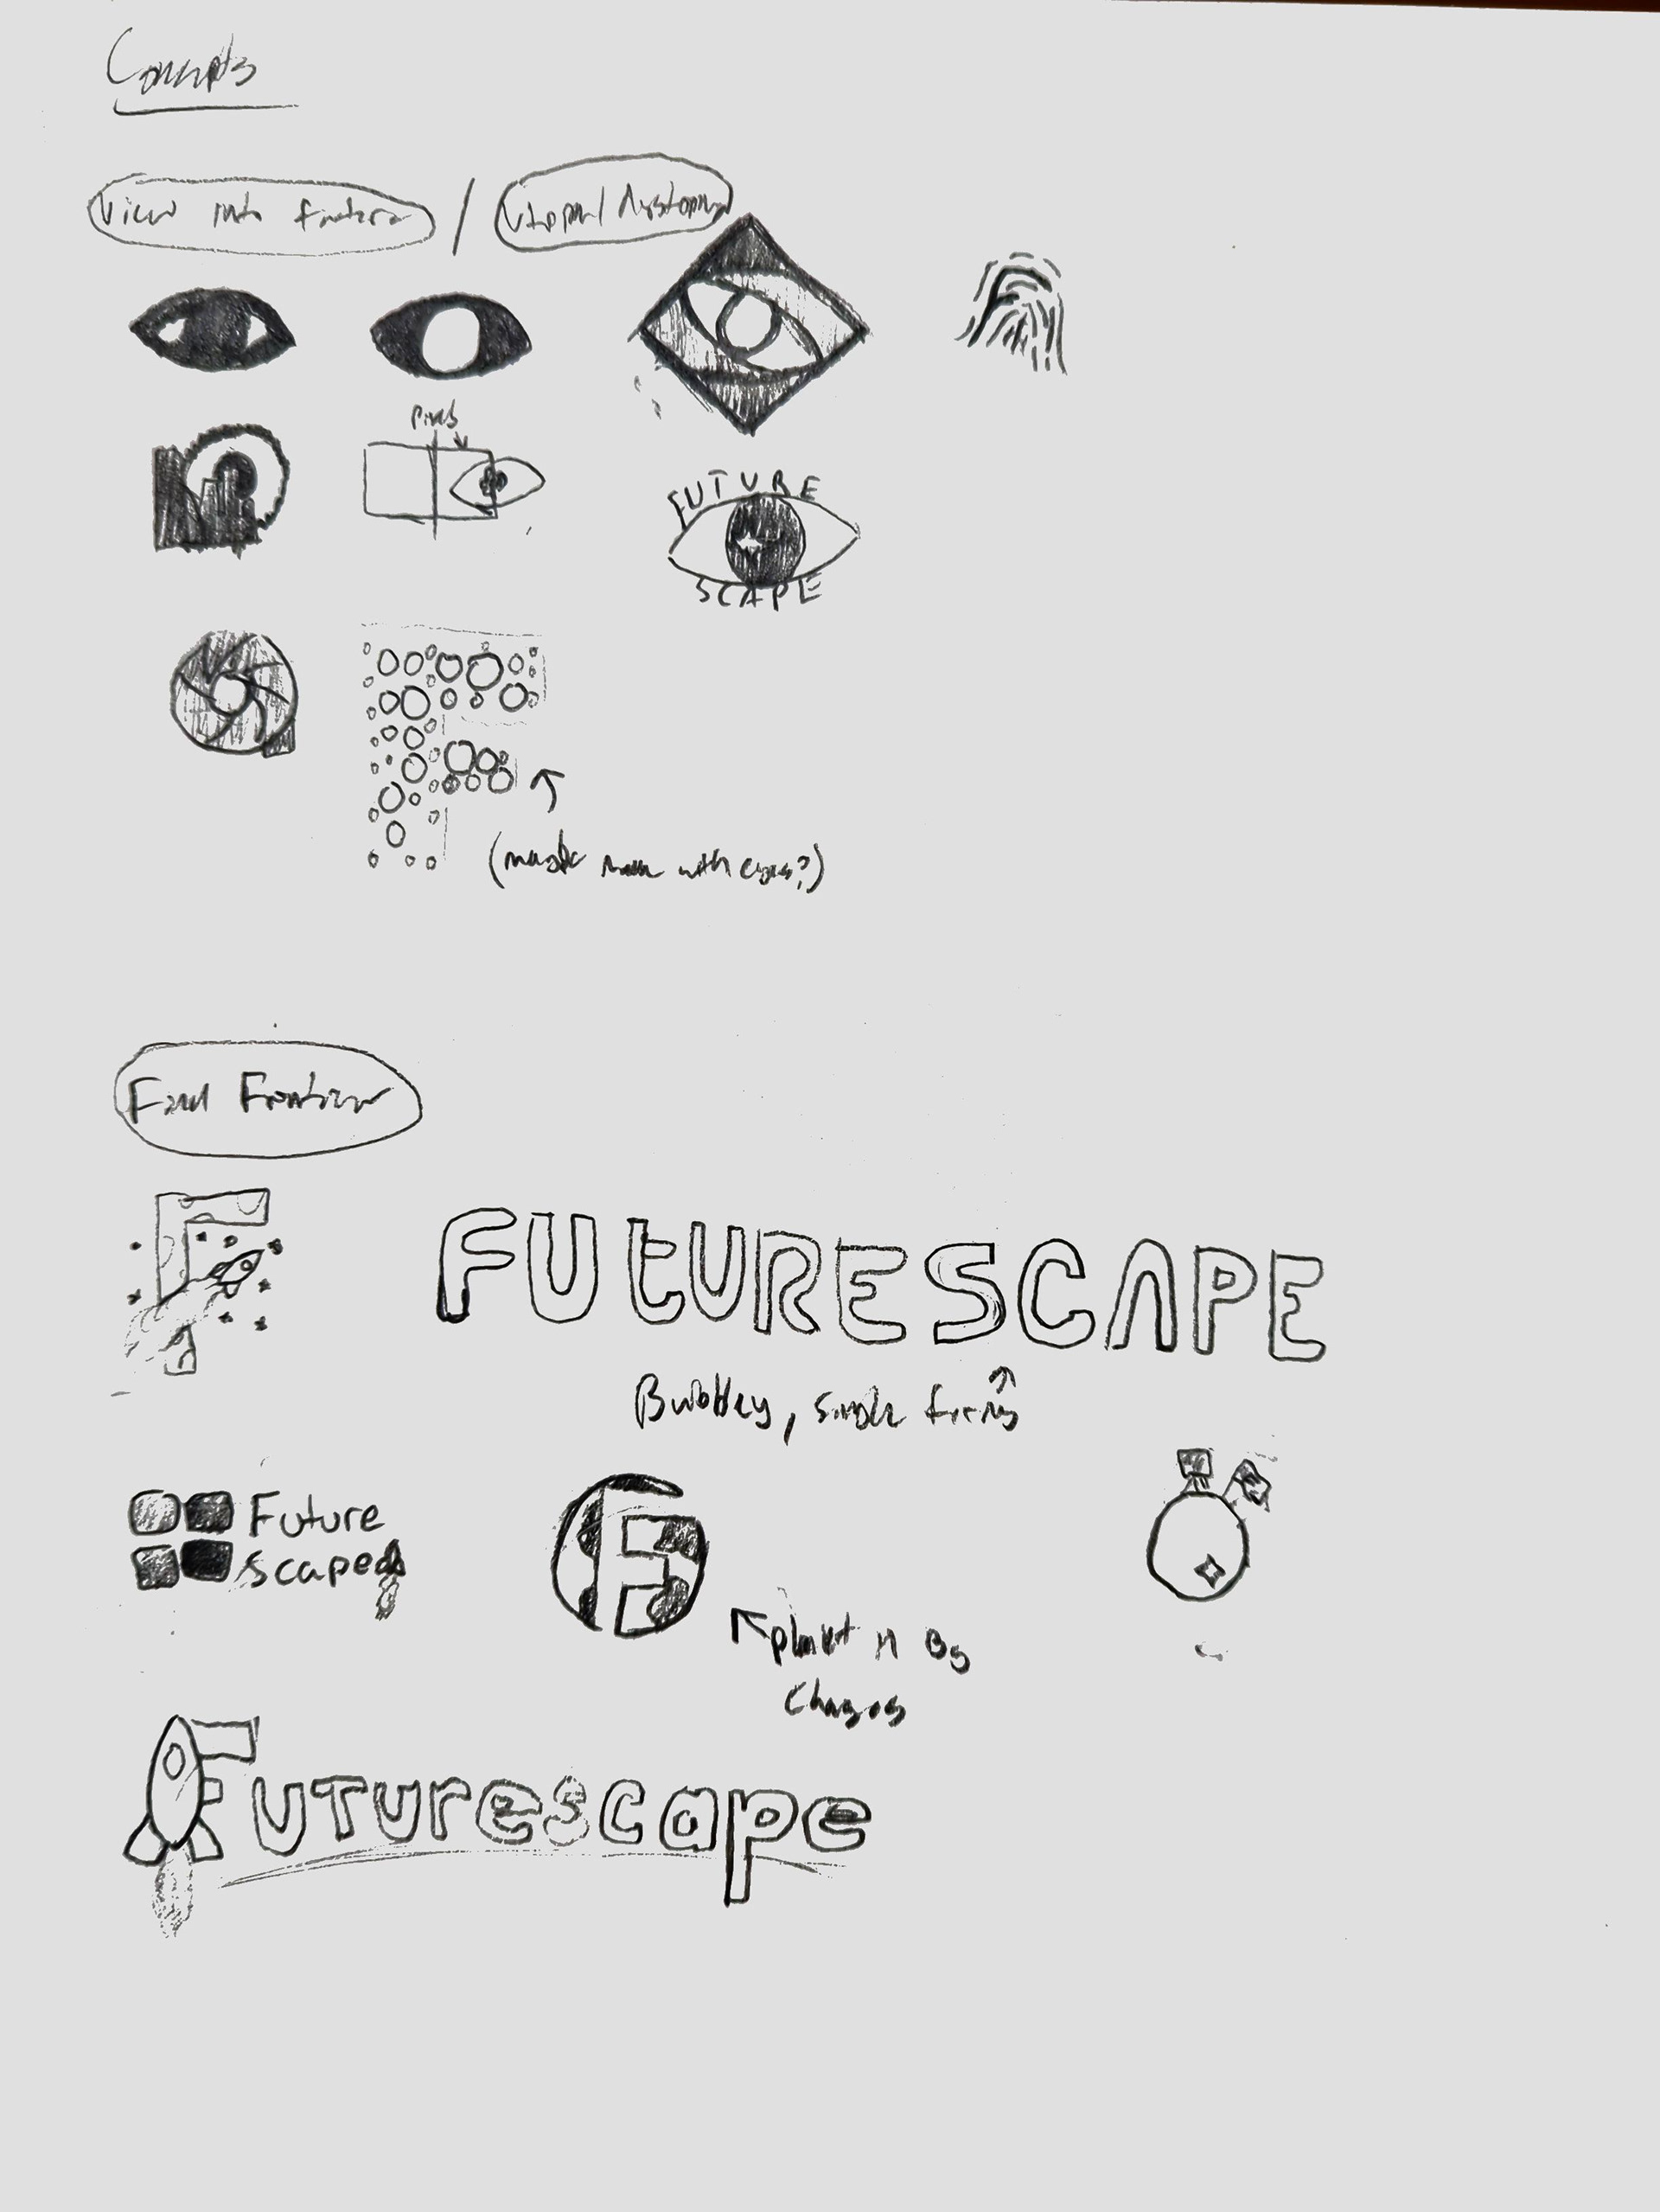 Concepts
View into future / Utopia/Dystopia
Pixels
FUTURE
SCAPE
(made with eyes?)
Final Frontier
FUtURESCAPE
Bubbley, simple forms
Future
Scape
F
planet in Bg
Changes
Futurescape